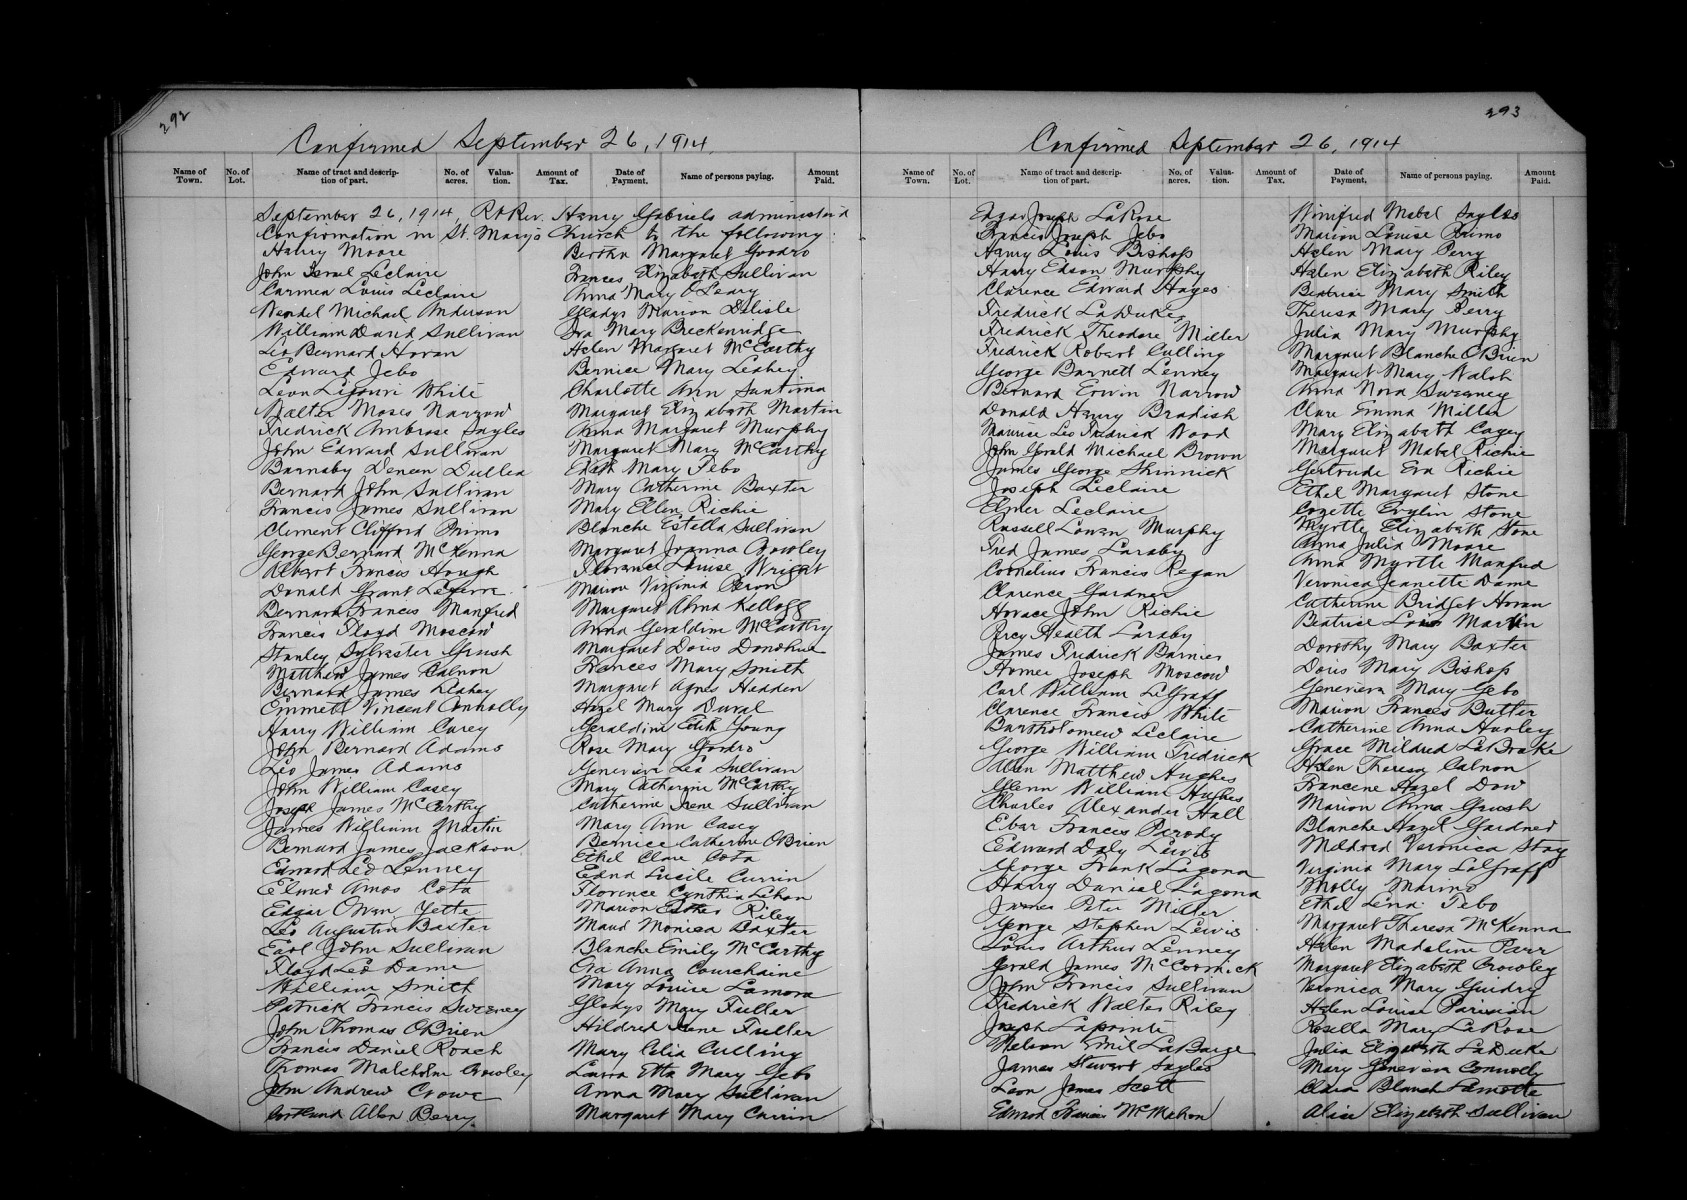 292
Confirmed September 26, 1914.
Name of Town. No. of Lot. Name of tract and descrip-tion of part. No. of acres. Valua-tion. Amount of Tax. Date of Payment. Name of persons paying. Amount Paid.
September 26, 1914, Rt Rev. Henry Gabriels administer'd
Confirmation in St. Mary's Church to the following:
Harry Moore
John Israel Leclaire
Carmen Louis Leclaire
Wendel Michael Anderson
William David Sullivan
Leo Bernard Horan
Edward Jebo
Leon Ligouri White
Walter Moses Narrow
Fredrick Ambrose Sayles
John Edward Sullivan
Barnaby Dullea
Bernard John Sullivan
Francis James Sullivan
Clement Clifford Primo
George Bernard McKenna
Albert Francis Hough
Donald Grant
Bernard Francis Manfred
Francis Floyd Moscow
Stanley Sylvester Grush
Matthew James Calnon
Bernard James Leahey
Emmett Vincent Connolly
Harry William Carey
John Bernard Adams
Leo James Adams
John William Casey
Joseph James McCarthy
James William Martin
Bernard James Jackson
Edward Leo Lenney
Elmer Amos Cota
Edgar Owen Yette
Leo Augustin Baxter
Earl John Sullivan
Floyd Leo Dame
William Smith
Patrick Francis Sweeney
John Thomas O'Brien
Francis Daniel Roach
Thomas Malcholm Crowley
John Andrew Crowe
Cortland Allen Berry
Bertha Margaret Goodro
Frances Elizabeth Sullivan
Anna Mary O'Leary
Gladys Marion Delisle
Iva Mary Breckenridge
Helen Margaret McCarthy
Bernice Mary Leahey
Charlotte Ann Santima
Margaret Elizabeth Martin
Anna Margaret Murphy
Margaret Mary McCarthy
Edith Mary Tebo
Mary Catherine Baxter
Mary Ellen Richie
Blanche Estella Sullivan
Margaret Joanna Crowley
Florence Louise Wright
Marion Virginia Peron
Margaret Alma Kellogg
Anna Geraldine McCarthy
Margaret Doris Donohue
Frances Mary Smith
Margaret Agnes Hedden
Hazel Mary Duval
Geraldine Edith Young
Rose Mary Goodro
Genevieve Lea Sullivan
Mary Catherine McCarthy
Catherine Irene Sullivan
Mary Ann Casey
Bernice Catherine O'Brien
Ethel Clare Cota
Edna Lucile Currin
Florence Cynthia Lehan
Marion Esther Riley
Maud Monica Baxter
Blanche Emily McCarthy
Eva Anna Courchaine
Mary Louise Lamora
Gladys Mary Fuller
Hildred Irene Fuller
Mary Celia Culling
Laura Etta Mary Gebo
Anna Mary Sullivan
Margaret Mary Currin
293
Confirmed September 26, 1914
Name of Town. No. of Lot. Name of tract and descrip-tion of part. No. of acres. Valua-tion. Amount of Tax. Date of Payment. Name of persons paying. Amount Paid.
Edgar Joseph LaRose
Francis Joseph Jebo
Henry Louis Bishop
Harry Edson Murphy
Clarence Edward Hayes
Fredrick LaDuke
Fredrick Theodore Miller
Fredrick Robert Culling
George Barnett Lenney
Bernard Erwin Narrow
Donald Henry Bradish
Maurice Leo Fredrick Wood
John Gerald Michael Brown
James George Shinnick
Joseph Leclaire
Elmer Leclaire
Russell Lowen Murphy
Fred James Laraby
Cornelius Francis Regan
Clarence Gardner
Horace John Richie
Percy Heath Laraby
James Fredrick Barnier
Homer Joseph Moscow
Carl William LaGraff
Clarence Francis White
Bartholomew Leclaire
George William Fredrick
Allen Matthew Hughes
Glenn William Hughes
Charles Alexander Hall
Eber Frances Parody
Edward Daly Lewis
George Frank Lagona
Harry Daniel Lagona
James Peter Miller
George Stephen Lewis
Louis Arthur Lenney
Gerald James McCormick
John Francis Sullivan
Fredrick Walter Riley
Joseph Lapointe
Nelson Emil LaBarge
James Stewart Sayles
Leon James Scott
Edward Francis McMahon
Winifred Mabel Sayles
Marion Louise Primo
Helen Mary Perry
Helen Elizabeth Riley
Beatrice Mary Smith
Theresa Mary Berry
Julia Mary Murphy
Margaret Blanche O'Brien
Margaret Mary Walsh
Anna Nora Sweeney
Clare Emma Miller
Mary Elizabeth Casey
Margaret Mabel Richie
Gertrude Eva Richie
Ethel Margaret Stone
Cozette Evylin Stone
Myrtle Elizabeth Stone
Anna Julia Moore
Anna Myrtle Manfred
Veronica Jeanette Dame
Catherine Bridget Horan
Beatrice Lois Martin
Dorothy Mary Baxter
Doris Mary Bishop
Genevieve Mary Gebo
Marion Frances Butler
Catherine Anna Hurley
Grace Mildred LaBrake
Helen Theresa Calnon
Francene Hazel Dow
Marion Anna Grush
Blanche Hazel Gardner
Mildred Veronica Stay
Virginia Mary LaGraff
Molly Marino
Ethel Lena Tebo
Margaret Theresa McKenna
Helen Madaline Parr
Margaret Elizabeth Crowley
Veronica Mary Guidry
Helen Louise Parisian
Rosella Mary LaRose
Julia Elizabeth LaDuke
Mary Genevieve Connolly
Clara Blanch Lamotte
Alice Elizabeth Sullivan